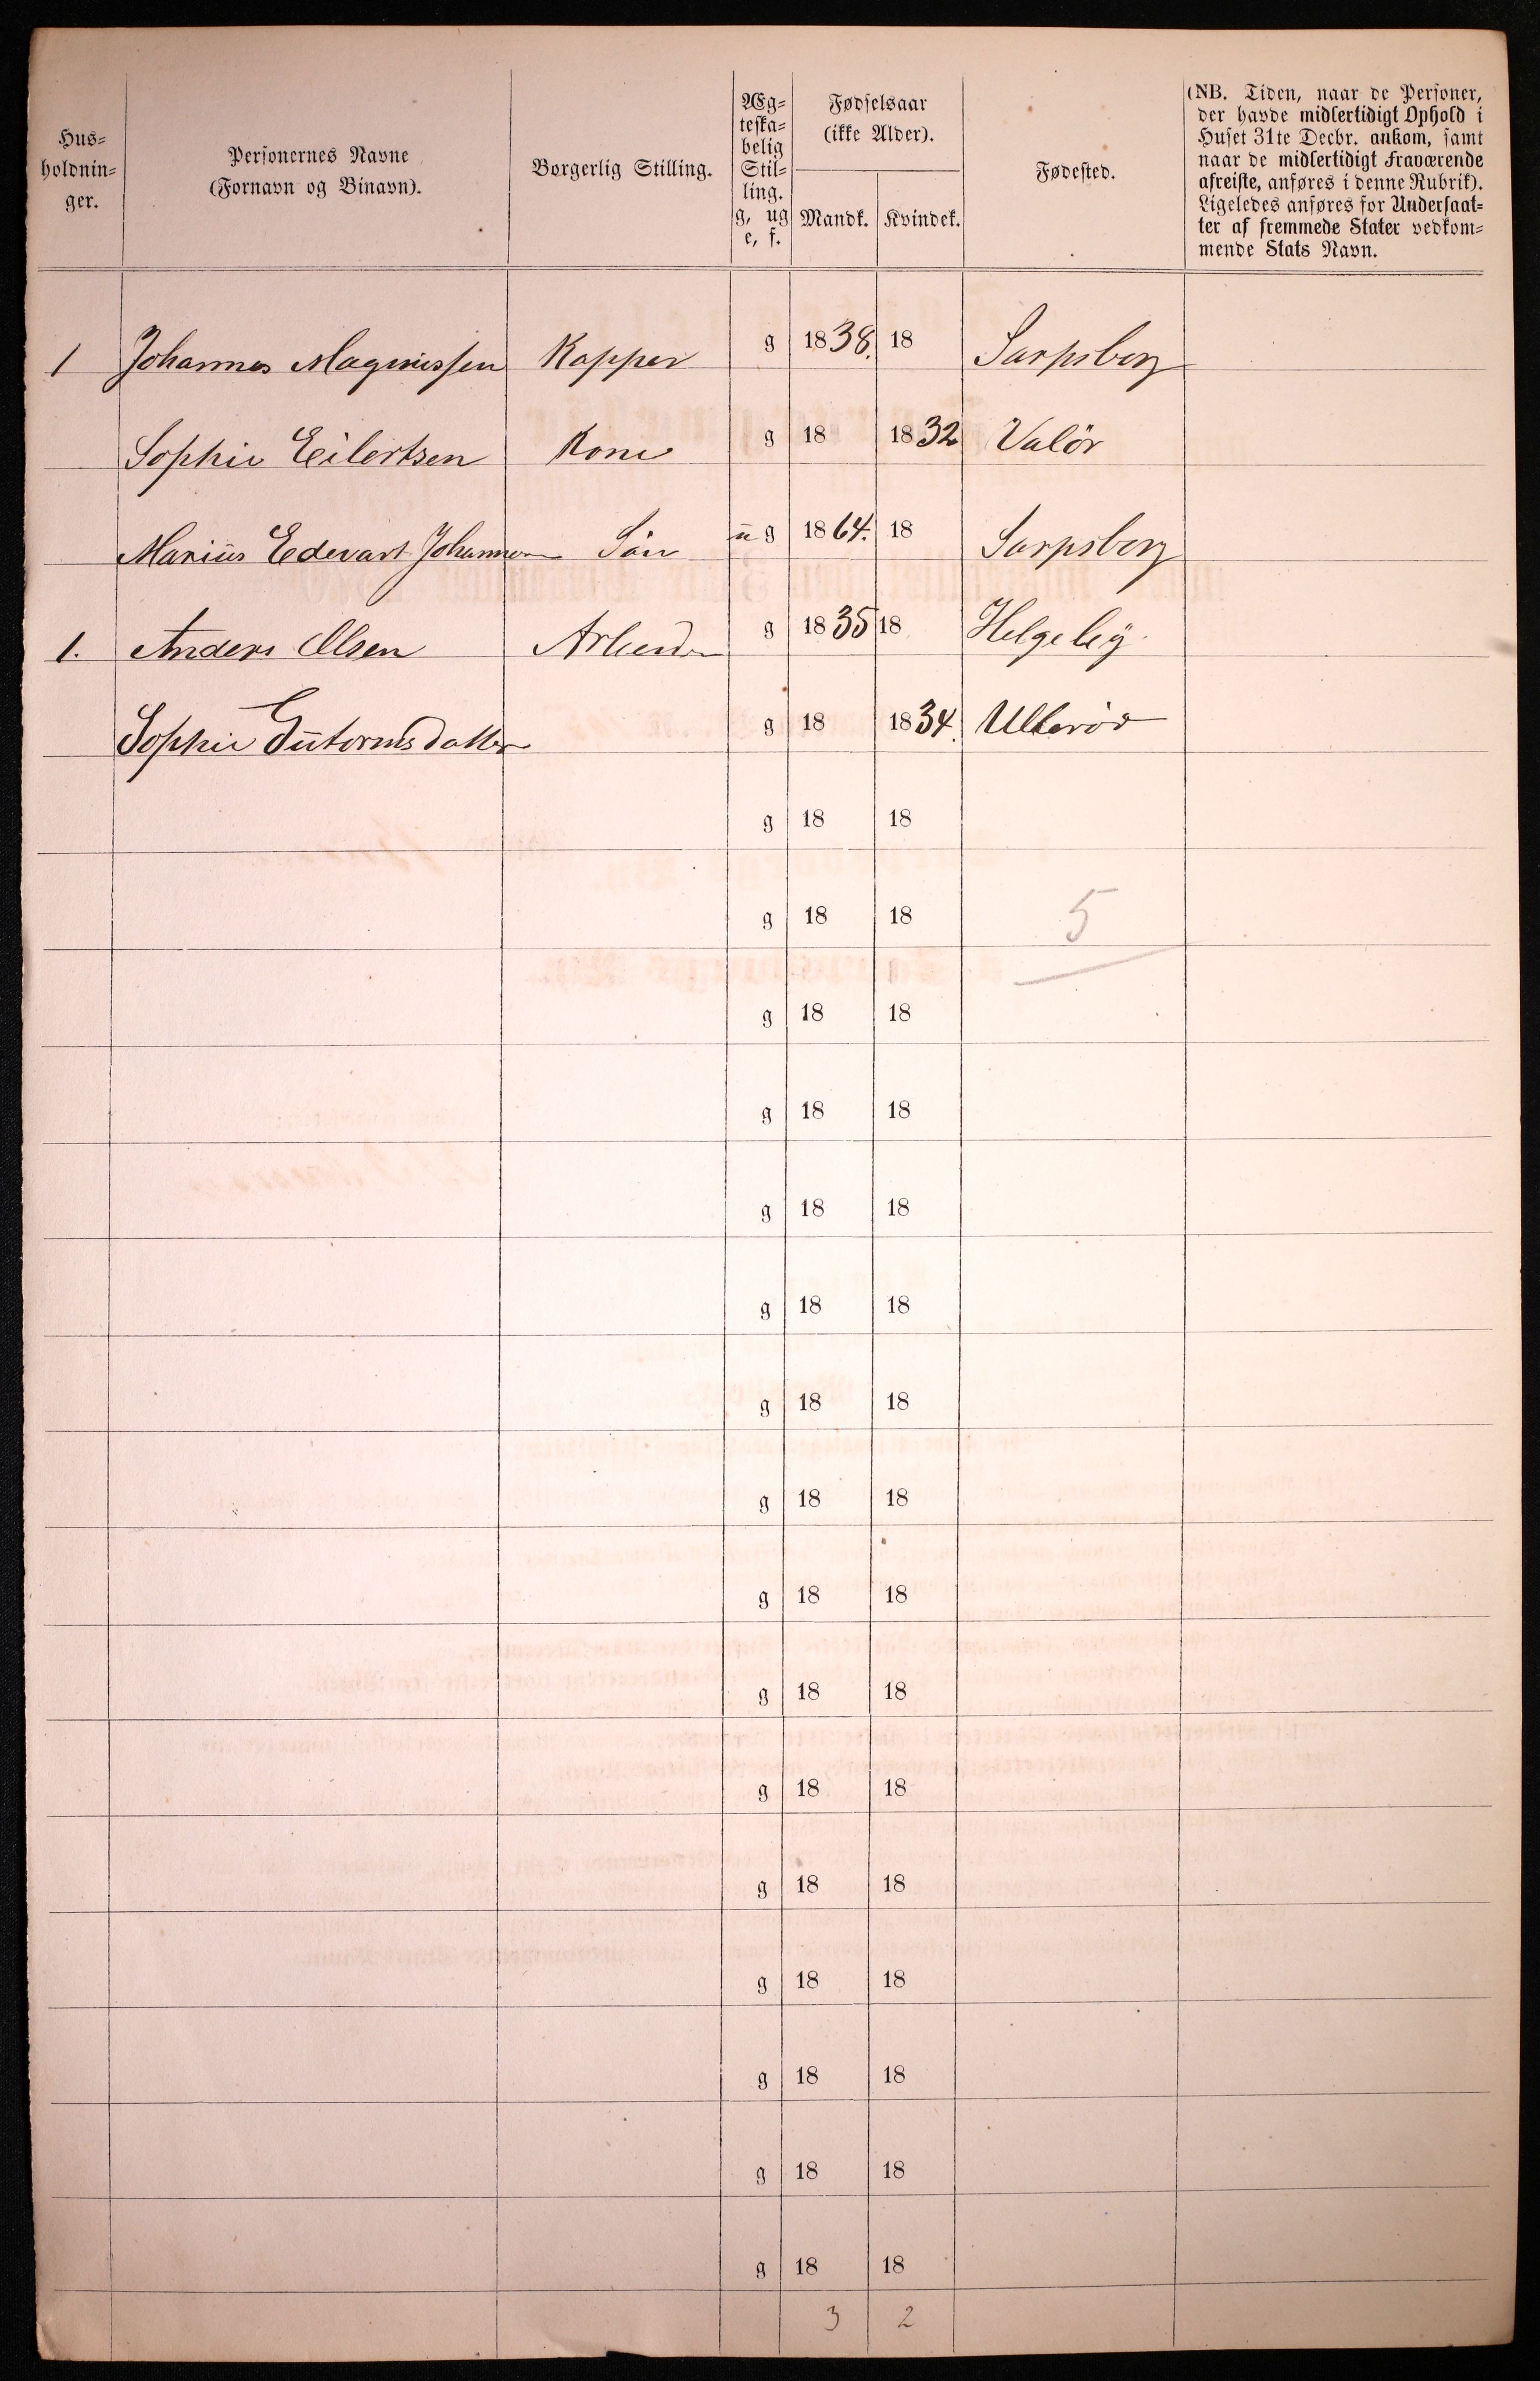 Hus=
holdnin=
ger.
Personernes Navne
(Fornavn og Binavn).
Borgerlig Stilling.
Æg=
teska=
belig
Stil=
ling.
g, ug
e, f.
Fødselsaar
(ikke Alder).
Mandk. Kvindek.
Fødested.
(NB. Tiden, naar de Personer,
der havde midlertidigt Ophold i
Huset 31te Decbr. ankom, samt
naar de midlertidigt fraværende
afreiste, anføres i denne Rubrik).
Ligeledes anføres for Undersaat=
ter af fremmede Stater vedkom=
mende Stats Navn.
1 Johannes Magnussen Kopper g 1838. 18 Sarpsborg
Sophie Eilertsen Kone g 18 1832 Valör
Marius Edevart Johannesen Sön ug 1864. 18 Sarpsborg
1. Anders Olsen Arbeider g 1835 18 Helgeby
Sophie Gutormsdatter g 18 1834. Ullerör
g 18 18
g 18 18 5
g 18 18
g 18 18
g 18 18
g 18 18
g 18 18
g 18 18
g 18 18
g 18 18
g 18 18
g 18 18
g 18 18
g 18 18
g 18 18
g 18 18
3 2